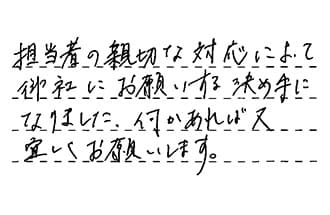 担当者の親切な対応によって
御社にお願いする決め手に
なりました、何かあれば又
宜しくお願いします。